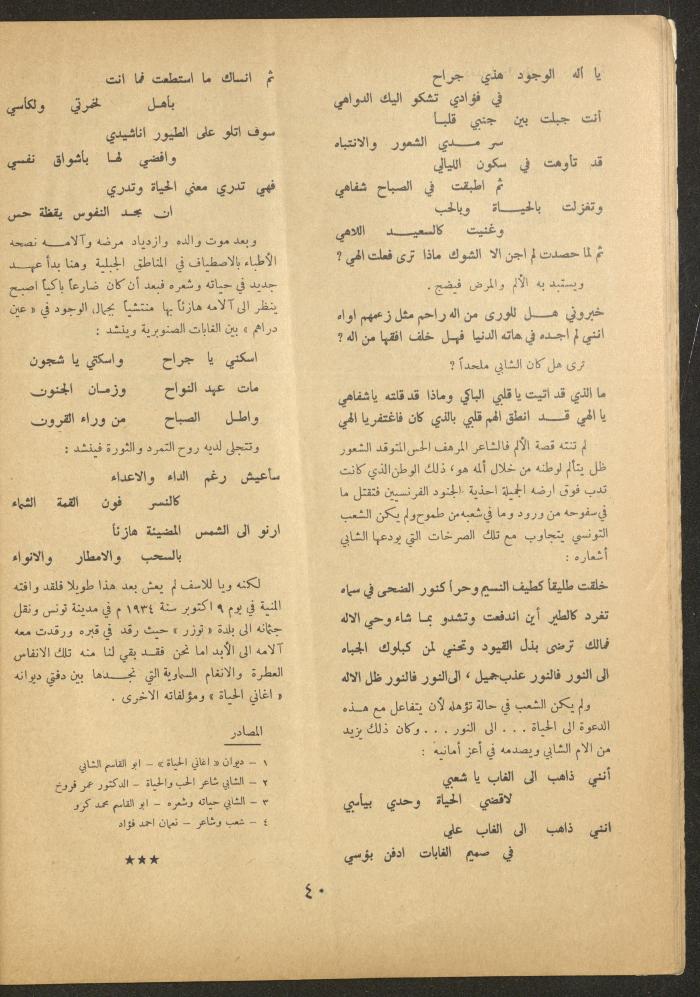 يا اله الوجود هذي جراح
في فؤادي تشكو اليك الدواهي
أنت جبلت بين جنبي قلبـا
سر مــدي الشعور والانتباه
قد تأوهت في سكون الليالي
ثم اطبقت في الصباح شفاهي
وتغزلت بالحيـاة وبالحب
وغنيت كالسعيـد اللاهي
ثم لما حصدت لم اجن الا الشوك ماذا ترى فعلت الهي ؟
ويستبد به الألم والمرض فيضج .
خبروني هـل للورى من اله راحم مثل زعمهم اواه
انني لم اجده في هاته الدنيا فهل خلف افقها من اله ؟
ترى هل كان الشابي ملحداً ؟
ما الذي قد اتيت يا قلبي الباكي وماذا قد قلته ياشفاهي
يا الهي قـد انطق الهم قلبي بالذي كان فاغتفر يا الهي
لم تنته قصة الألم فالشاعر المرهف الحس المتوقد الشعور
ظل يتألم لوطنه من خلال ألمه هو، ذلك الوطن الذي كانت
تدب فوق ارضه الجميلة احذية الجنود الفرنسيين فتقتل ما
في سفوحه من ورود وما في شعبه من طموح ولم يكن الشعب
التونسي يتجاوب مع تلك الصرخات التي يودعها الشابي
أشعاره :
خلقت طليقاً كطيف النسيم وحراً كنور الضحى في سماه
تغرد كالطير أين اندفعت وتشدو بمـا شاء وحي الاله
فمالك ترضى بذل القيود وتحني لمن كبلوك الجباه
الى النور فالنور عذب جميل ، الى النور فالنور ظل الاله
ولم يكن الشعب في حالة تؤهله لأن يتفاعل مع هـذه
الدعوة الى الحياة . . . الى النور . . . وكان ذلك يزيد
من الام الشابي ويصدمه في أعز أمانيه :
أنني ذاهب الى الغاب يا شعبي
لاقضي الحياة وحدي بيأسي
انني ذاهب الى الغاب علي
في صميم الغابات ادفن بؤسي
ثم انساك ما استطعت فما انت
بأهـل لخمرتي ولكأسي
سوف اتلو على الطيور اناشيدي
وافضي لهـا بأشواق نفسي
فهي تدري معنى الحياة وتدري
ان مجـد النفوس يقظة حس
وبعد موت والده وازدياد مرضه وآلامـه نصحه
الأطباء بالاصطياف في المناطق الجبلية وهنا بدأ عهـد
جديد في حياته وشعره فبعد أن كان ضارعاً باكياً اصبح
ينظر الى آلامه هازئاً بها منتشياً بجمال الوجود في « عين
دراهم » بين الغابات الصنوبرية وينشد :
اسكني يا جراح واسكتي يا شجون
مات عهد النواح وزمـان الجنون
واطـل الصباح من وراء القرون
وتتجلى لديه روح التمرد والثورة فينشد :
سأعيش رغم الداء والاعداء
كالنسر فوق القمة الشماء
ارنو الى الشمس المضيئة هازئاً
بالسحب والامطار والانواء
لكنه ويا للاسف لم يعش بعد هذا طويلا فلقد وافته
المنية في يوم ٩ اكتوبر سنة ١٩٣٤ م في مدينة تونس ونقل
جثمانه الى بلدة « توزر » حيث رقد في قبره ورقدت معه
آلامه الى الأبد اما نحن فقـد بقي لنا منه تلك الانفاس
العطرة والانغام السماوية التي نجـدها بين دفتي ديوانه
« اغاني الحياة » ومؤلفاته الاخرى .
المصادر
١ – ديوان « اغاني الحياة » – ابو القاسم الشابي
٢ – الشابي شاعر الحب والحياة – الدكتور عمر فروخ
٣ – الشابي حياته وشعره – ابو القاسم محمد كرو
٤ – شعب وشاعر – نعمان احمد فؤاد
★★★
٤٠